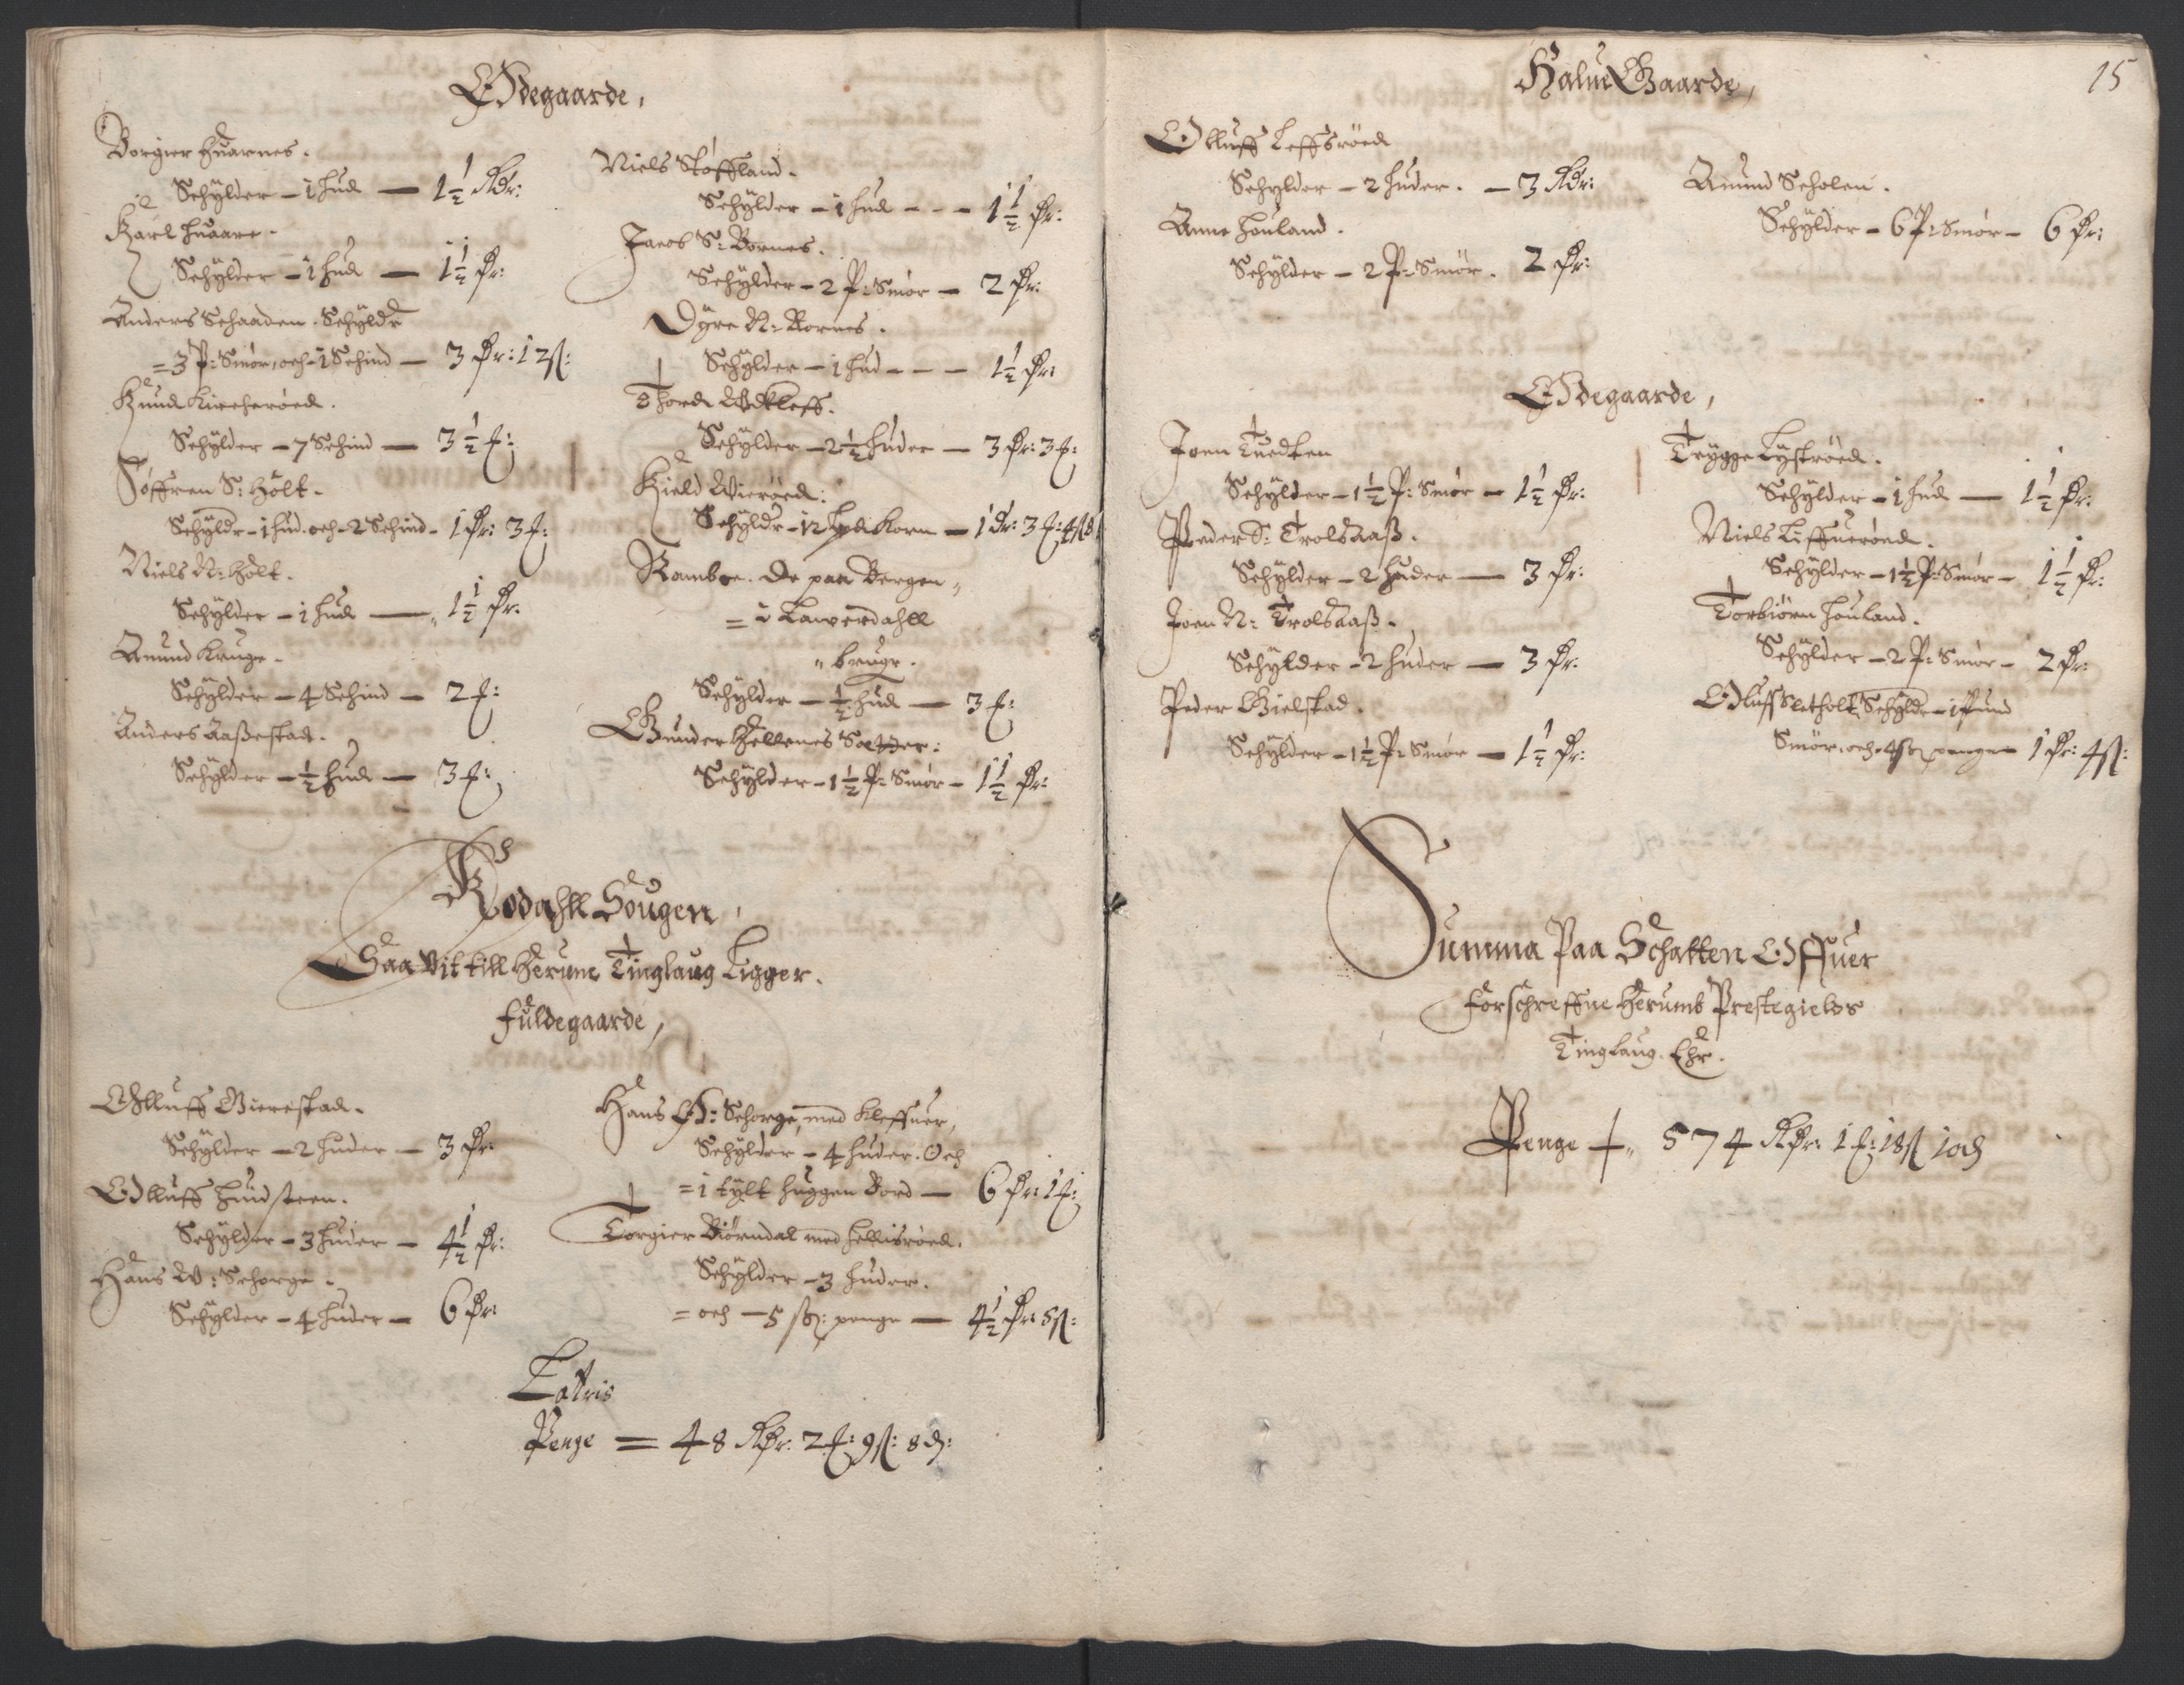 Ødegaarde,
Borgier Huarnes.
Schylder – 1 hud — 1½ Rdr:
Karl Huaare.
Schylder – 1 hud — 1½ Dr:
Anders Schaaden. Schyldr
= 3 P: Smør, och – 1 Schind — 3 Dr: 12 ß:
Knud Kircherøed.
Schylder – 7 Schind — 3½ £:
Søffren S: Holt.
Schyldr – 1 hud. och – 2 Schind – 1 Dr: 3 £:
Niels N: Holt.
Schylder – 1 hud —„ 1½ Dr.
Amund Kruge.
Schylder – 4 Schind – 2 £:
Anders Aaßestad.
Schylder – ½ hud – 3 £:
Niels Støffland.
Schylder – 1 hud – – – 1½ Dr:
Jacob S: Bornes.
Schylder – 2 P: Smør – 2 Dr:
Dyre N: Bornes.
Schylder – 1 hud – – – 1½ Dr:
Thord Wdkleff.
Schylder – 2½ huder – 3 Dr: 3 £:
Kield Wierøed:
Schyldr – 12 Korn – 1 Dr: 3 £:
Ramboe. De paa Bergen „
= i Lawerdahll
„ bruge.
Schylder – ½ hud — 3 £:
Gunder Hellenes Sætter:
Schylder – 1½ P: Smør – 1½ Dr:
Rodahll Sougen,
Saa Vit till Herum Tinglaug Ligger.
Fuldegaarde,
Olluff Gierestad.
Schylder – 2 huder – 3 Dr:
Olluff Hundsteen.
Schylder – 3 huder – 4½ Dr:
Hans W: Schorge.
Schylder – 4 huder – 6 Dr:
Hans Ø: Schorge, med Kleffuer,
Schylder – 4 huder. Och
= 1 tylt huggen Bord — 6 Dr: 1 £:
Torgier Biørndal med Hellisrøed.
Schylder – 3 huder.
= och – 5 ß: penge — 4½ Dr: 5 ß:
Lattris
Penge = 48 Rdr. 2 £: 9 ß: 8 d:
15
Halue Gaarde,
Olluff Leffsrøed
Schylder – 2 huder. – 3 Rdr:
Anne Houland.
Schylder – 2 P: Smør. 2 Dr:
Amund Scholen.
Schylder – 6 P: Smør – 6 Dr:
Ødegaarde,
Joen Tuedten
Schylder – 1½ P: Smør – 1½ Dr:
Peder S: Trolsaaß.
Schylder – 2 huder — 3 Dr:
Joen N: Trolsaaß.
Schylder – 2 huder — 3 Dr:
Peder Gielstad.
Schylder – 1½ P: Smør — 1½ Dr:
Trygge Lystrøed.
Schylder – 1 hud — 1½ Dr:
Niels Liffuerøed.
Schylder – 1½ P: Smør – 1½ Dr:
Torbiørn Houland.
Schylder – 2 P: Smør – 2 Dr:
Oluff Sletholt, Schyldr – 1 Pund
Smør. och – 4 ß penge – 1 Dr: 4 ß:
Summa Paa Schatten Offuer
Forschreffne Herumb Prestegields
Tinglaug. Ehr.
Penge +„ 574 Rdr: 1 £: 18 ß 10 d